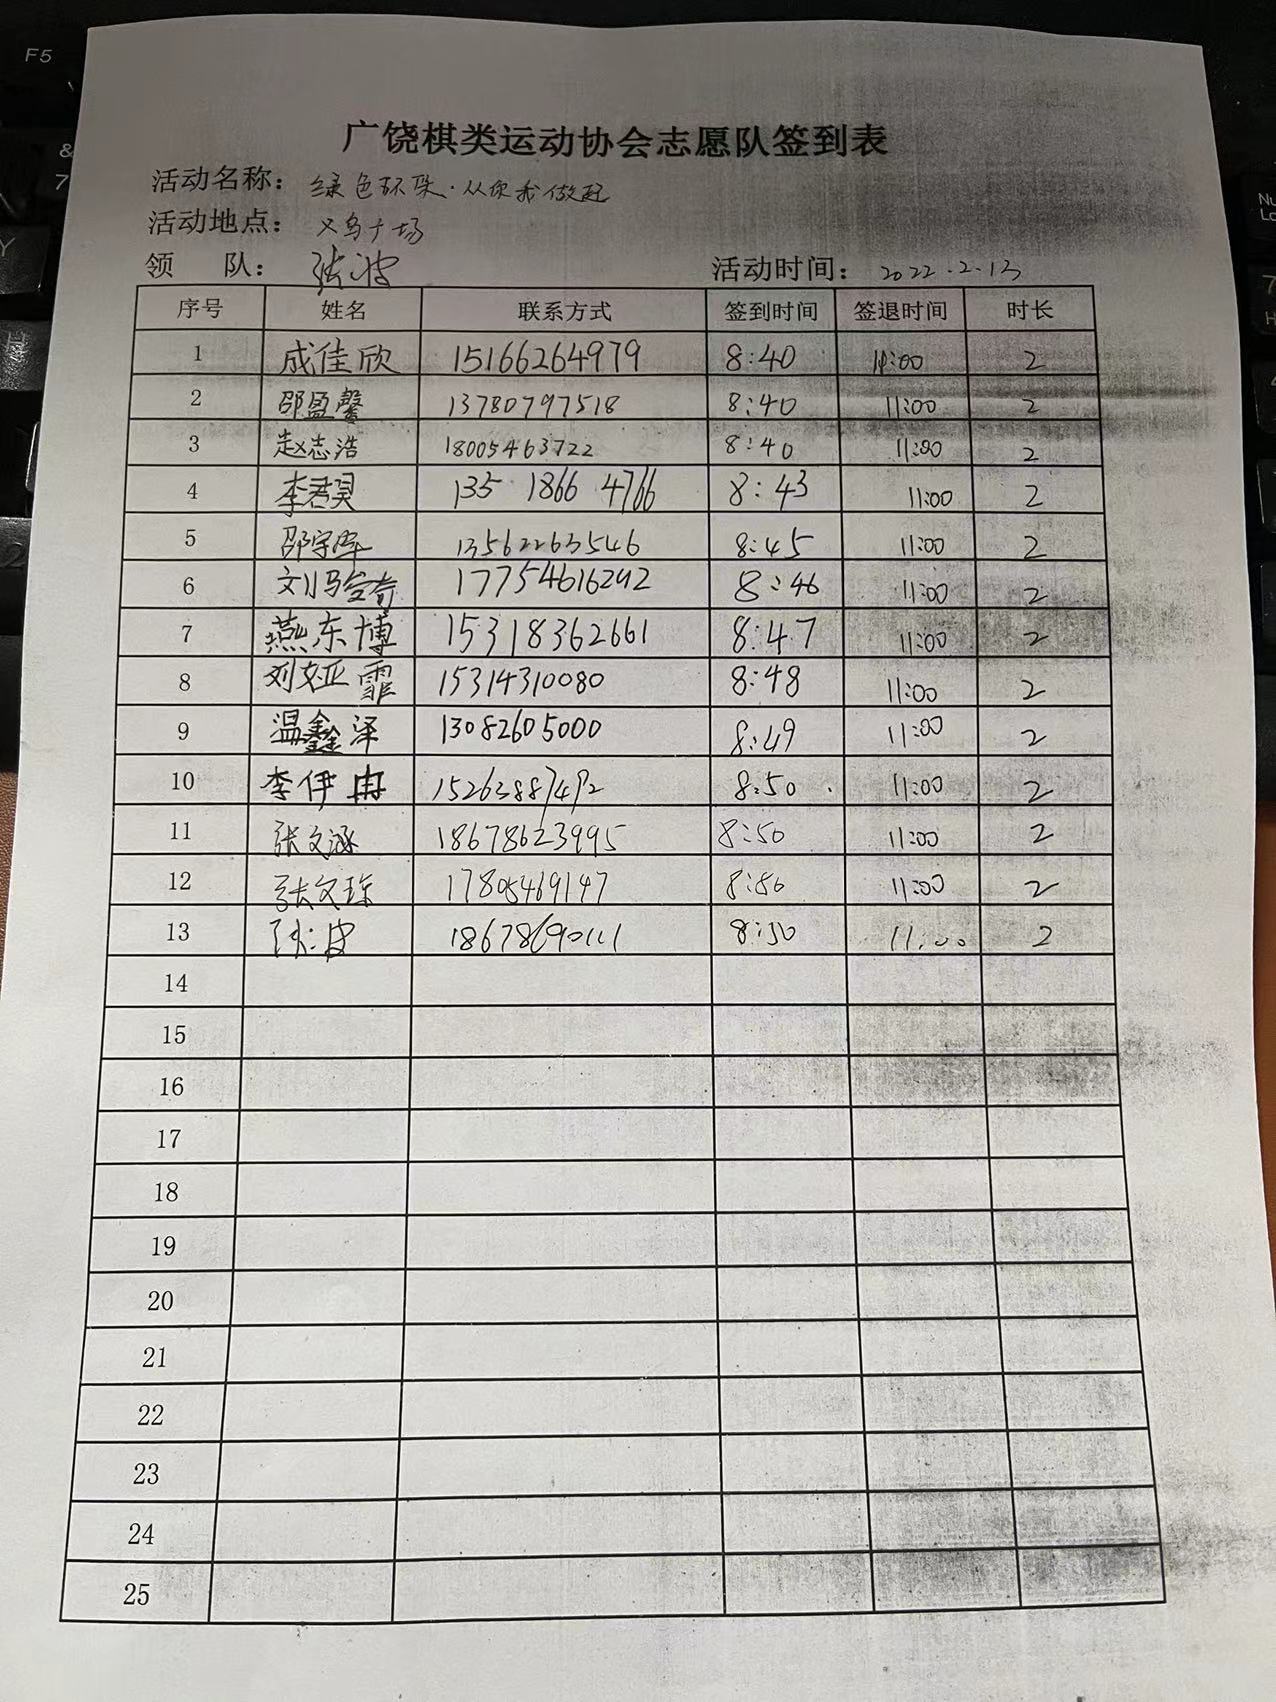 广饶棋类运动协会志愿队签到表
活动名称： 绿色环保·从你我做起
活动地点： 义乌广场
领 队： 张波 活动时间： 2022.2.13
序号 姓名 联系方式 签到时间 签退时间 时长
1 成佳欣 15166264979 8:40 11:00 2
2 邵盈馨 13780797518 8:40 11:00 2
3 赵志浩 18005463722 8:40 11:00 2
4 李君昊 135 1866 4766 8:43 11:00 2
5 邵宇晖 13562263546 8:45 11:00 2
6 17754616242 8:46 11:00 2
7 燕东博 15318362661 8:47 11:00 2
8 刘亚霏 15314310080 8:48 11:00 2
9 温鑫泽 13082605000 8:49 11:00 2
10 李伊冉 15263887492 8:50 11:00 2
11 张文涵 18678623995 8:50 11:00 2
12 张文琮 17805469147 8:50 11:00 2
13 张波 18678690111 8:50 11:00 2
14
15
16
17
18
19
20
21
22
23
24
25
F5
&
7
Y
2